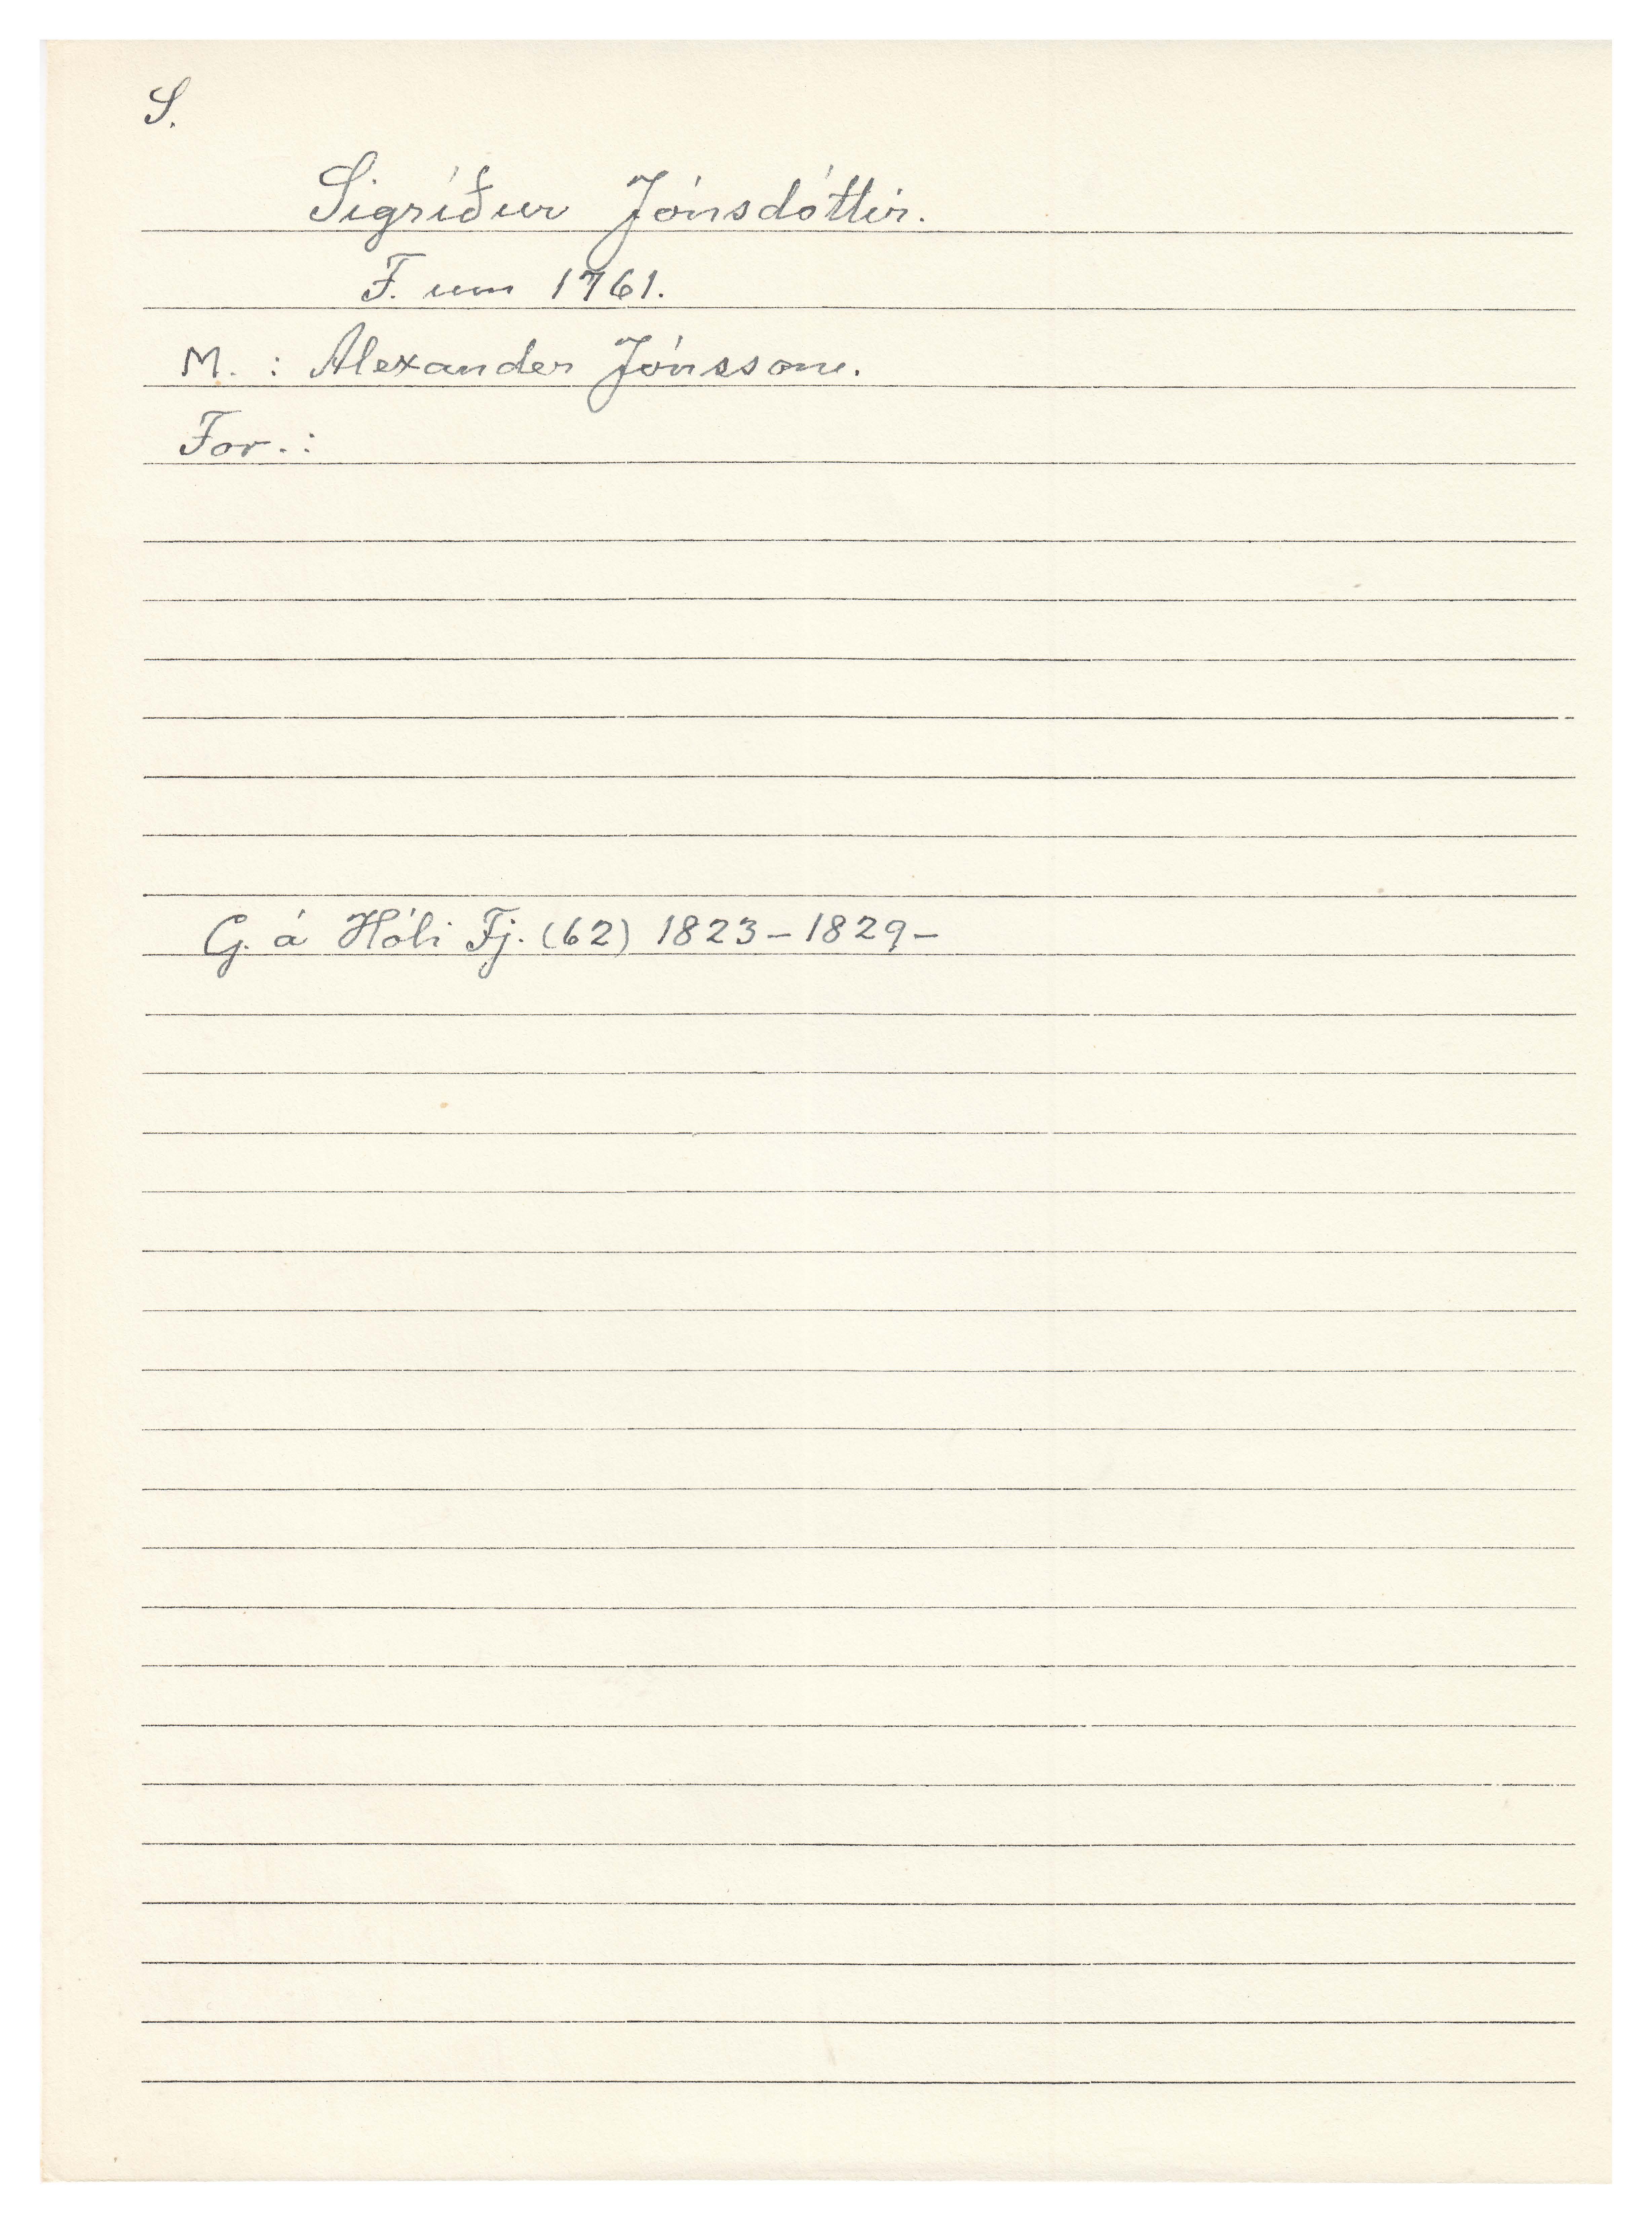 S.
Sigríður Jónsdóttir.
F. um 1761.
M. : Alexander Jónsson.
For. :
G. á Hóli Fj. (62) 1823 - 1829 -